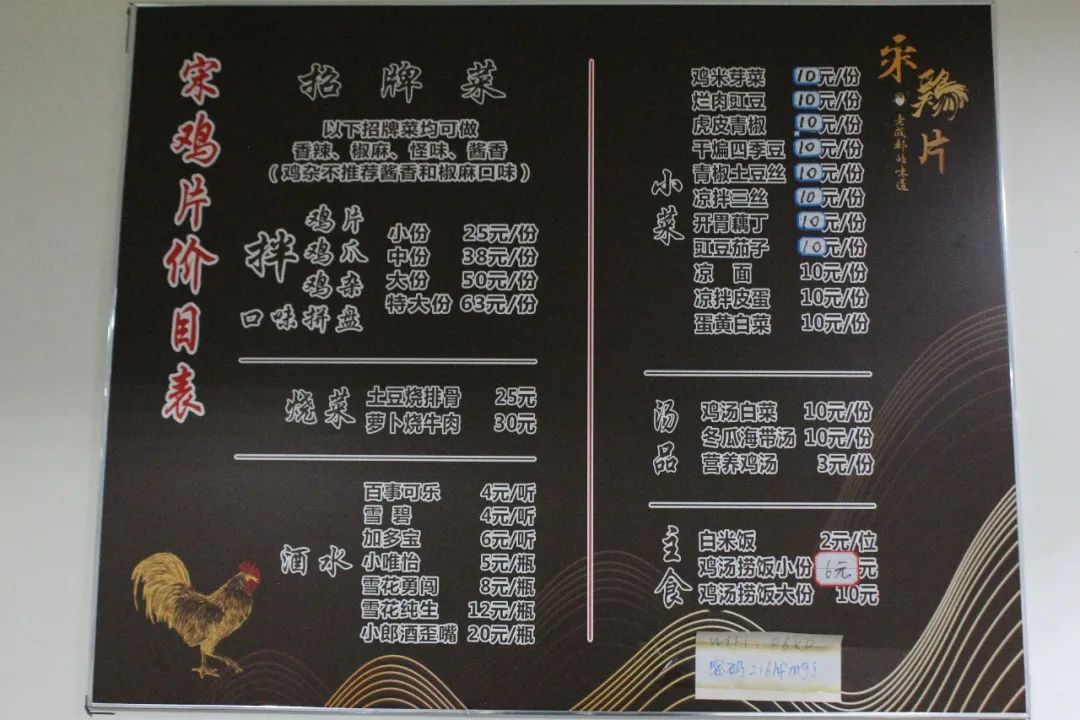 宋鸡片价目表
招牌菜
以下招牌菜均可做
香辣、椒麻、怪味、酱香
（鸡杂不推荐酱香和椒麻口味）
拌
鸡片
鸡爪
鸡杂
口味拼盘
小份 25元/份
中份 38元/份
大份 50元/份
特大份 63元/份
烧菜
土豆烧排骨 25元
萝卜烧牛肉 30元
酒水
百事可乐 4元/听
雪碧 4元/听
加多宝 6元/听
小唯怡 5元/瓶
雪花勇闯 8元/瓶
雪花纯生 12元/瓶
小郎酒歪嘴 20元/瓶
小菜
鸡米芽菜 10元/份
烂肉豇豆 10元/份
虎皮青椒 10元/份
干煸四季豆 10元/份
青椒土豆丝 10元/份
凉拌三丝 10元/份
开胃藕丁 10元/份
豇豆茄子 10元/份
凉面 10元/份
凉拌皮蛋 10元/份
蛋黄白菜 10元/份
汤品
鸡汤白菜 10元/份
冬瓜海带汤 10元/份
营养鸡汤 3元/份
主食
白米饭 2元/位
鸡汤捞饭小份 6元元
鸡汤捞饭大份 10元
宋鷄片
老成都的味道
WiFi:
密码